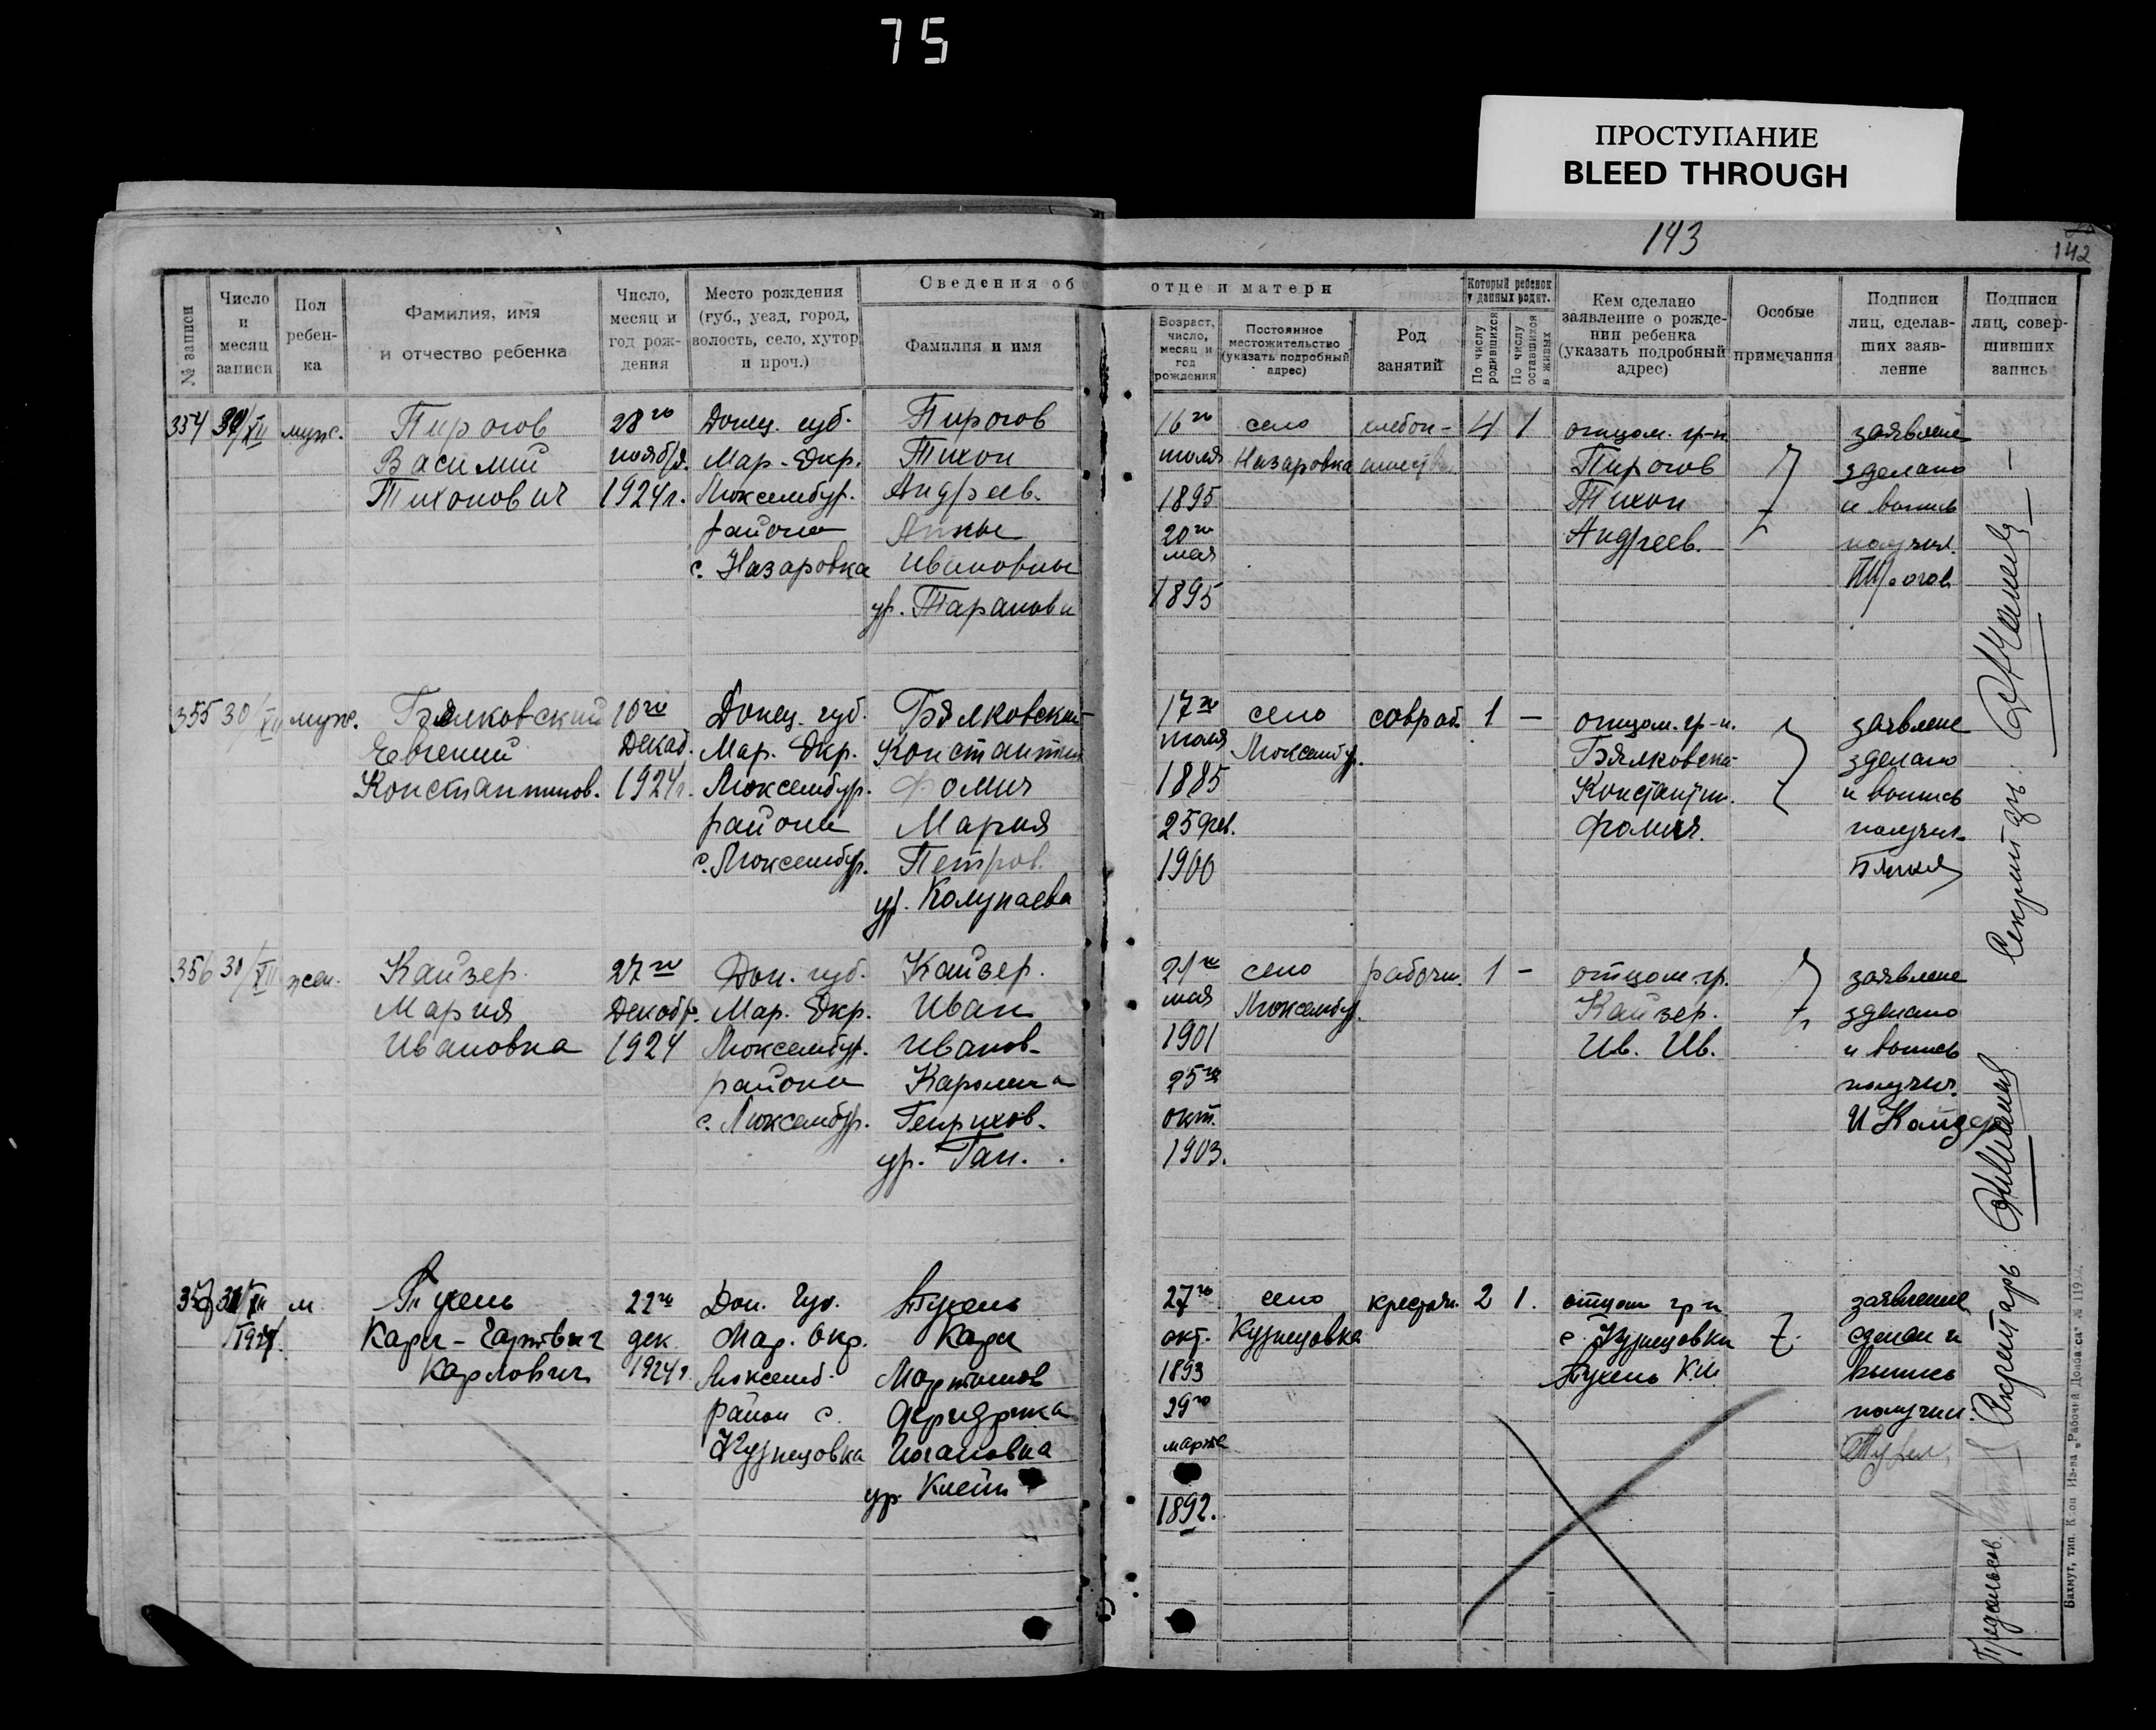 75
ПРОСТУПАНИЕ
BLEED THROUGH
143
142
№ записи
Число и месяц записи
Пол ребен-ка
Фамилия, имя и отчество ребенка
Число, месяц и год рож-дения
Место рождения (губ., уезд, город, волость, село, хутор и проч.)
Сведения об отце и матери
Фамилия и имя
Возраст, число, месяц и год рождения
Постоянное местожительство (указать подробный адрес)
Род занятий
Который ребенок у данных родит.
По числу родившихся
По числу оставшихся в живых
Кем сделано заявление о рожде-нии ребенка (указать подробный адрес)
Особые примечания
Подписи лиц, сделав-ших заяв-ление
Подписи лиц, совер-шивших запись
354 30/XII муж. Пирогов 28го Донец. губ. Пирогов 16го село хлебоп- 4 1 отцом. гр-н заявление
Василий ноября. Мар. Окр. Тихон июля Назаровка Пирогов зделано
Тихонович 1924г. Люксембур. Андреев. 1895 Тихон и выпись
района Анны 20го мая Андреев. получил.
с. Назаровка Ивановны Пирогов
ур. Таранова 1895
355 30/XII муж. Бялковский 10го Донец. губ. Бялковский 17го село совраб. 1 — отцом. гр-н. заявлене
Евгений Декаб. Мар. Окр. Константин июля Люксембур. Бялковский зделано
Константинов. 1924г. Люксембур. Фомич 1885 Константин. и выпись
района Мария 25 фев. Фомич. получил
с. Люксембур. Петров. 1900
ур. Колупаева
356 30/XII жен. Кайзер. 27го Дон. губ. Кайзер. 21го село рабочи. 1 - отцом. гр. заявлене
Мария Декабр. Мар. Окр. Иван мая Люксембур. Кайзер. зделано
Ивановна 1924 Люксембур. Иванов- 1901 Ив. Ив. и выпись
района Каролина 25го получил.
с. Люксембур. Генрихов. окт. И Кайзер
ур. Ган. 1903.
Секретарь:
357 31/XII м. Тухель 22го Дон. Губ. Тухель 27го село крестьян. 2 1. отцом гр-н заявление
1924. Карл-Гартвич дек. Мар. Окр. Карл окт. Кузнецовка с. Кузнецовки сделан и
Карлович 1924г. Люксемб. Мартынов 1893 Тухель К.М. выпись
район с. Фридрика 29го получил.
Кузнецовка Иогановна марта
ур. Клейн 1892.
Секретарь:
Бахмут, тип. Изд-ва „Рабочий Донбасса" № 119